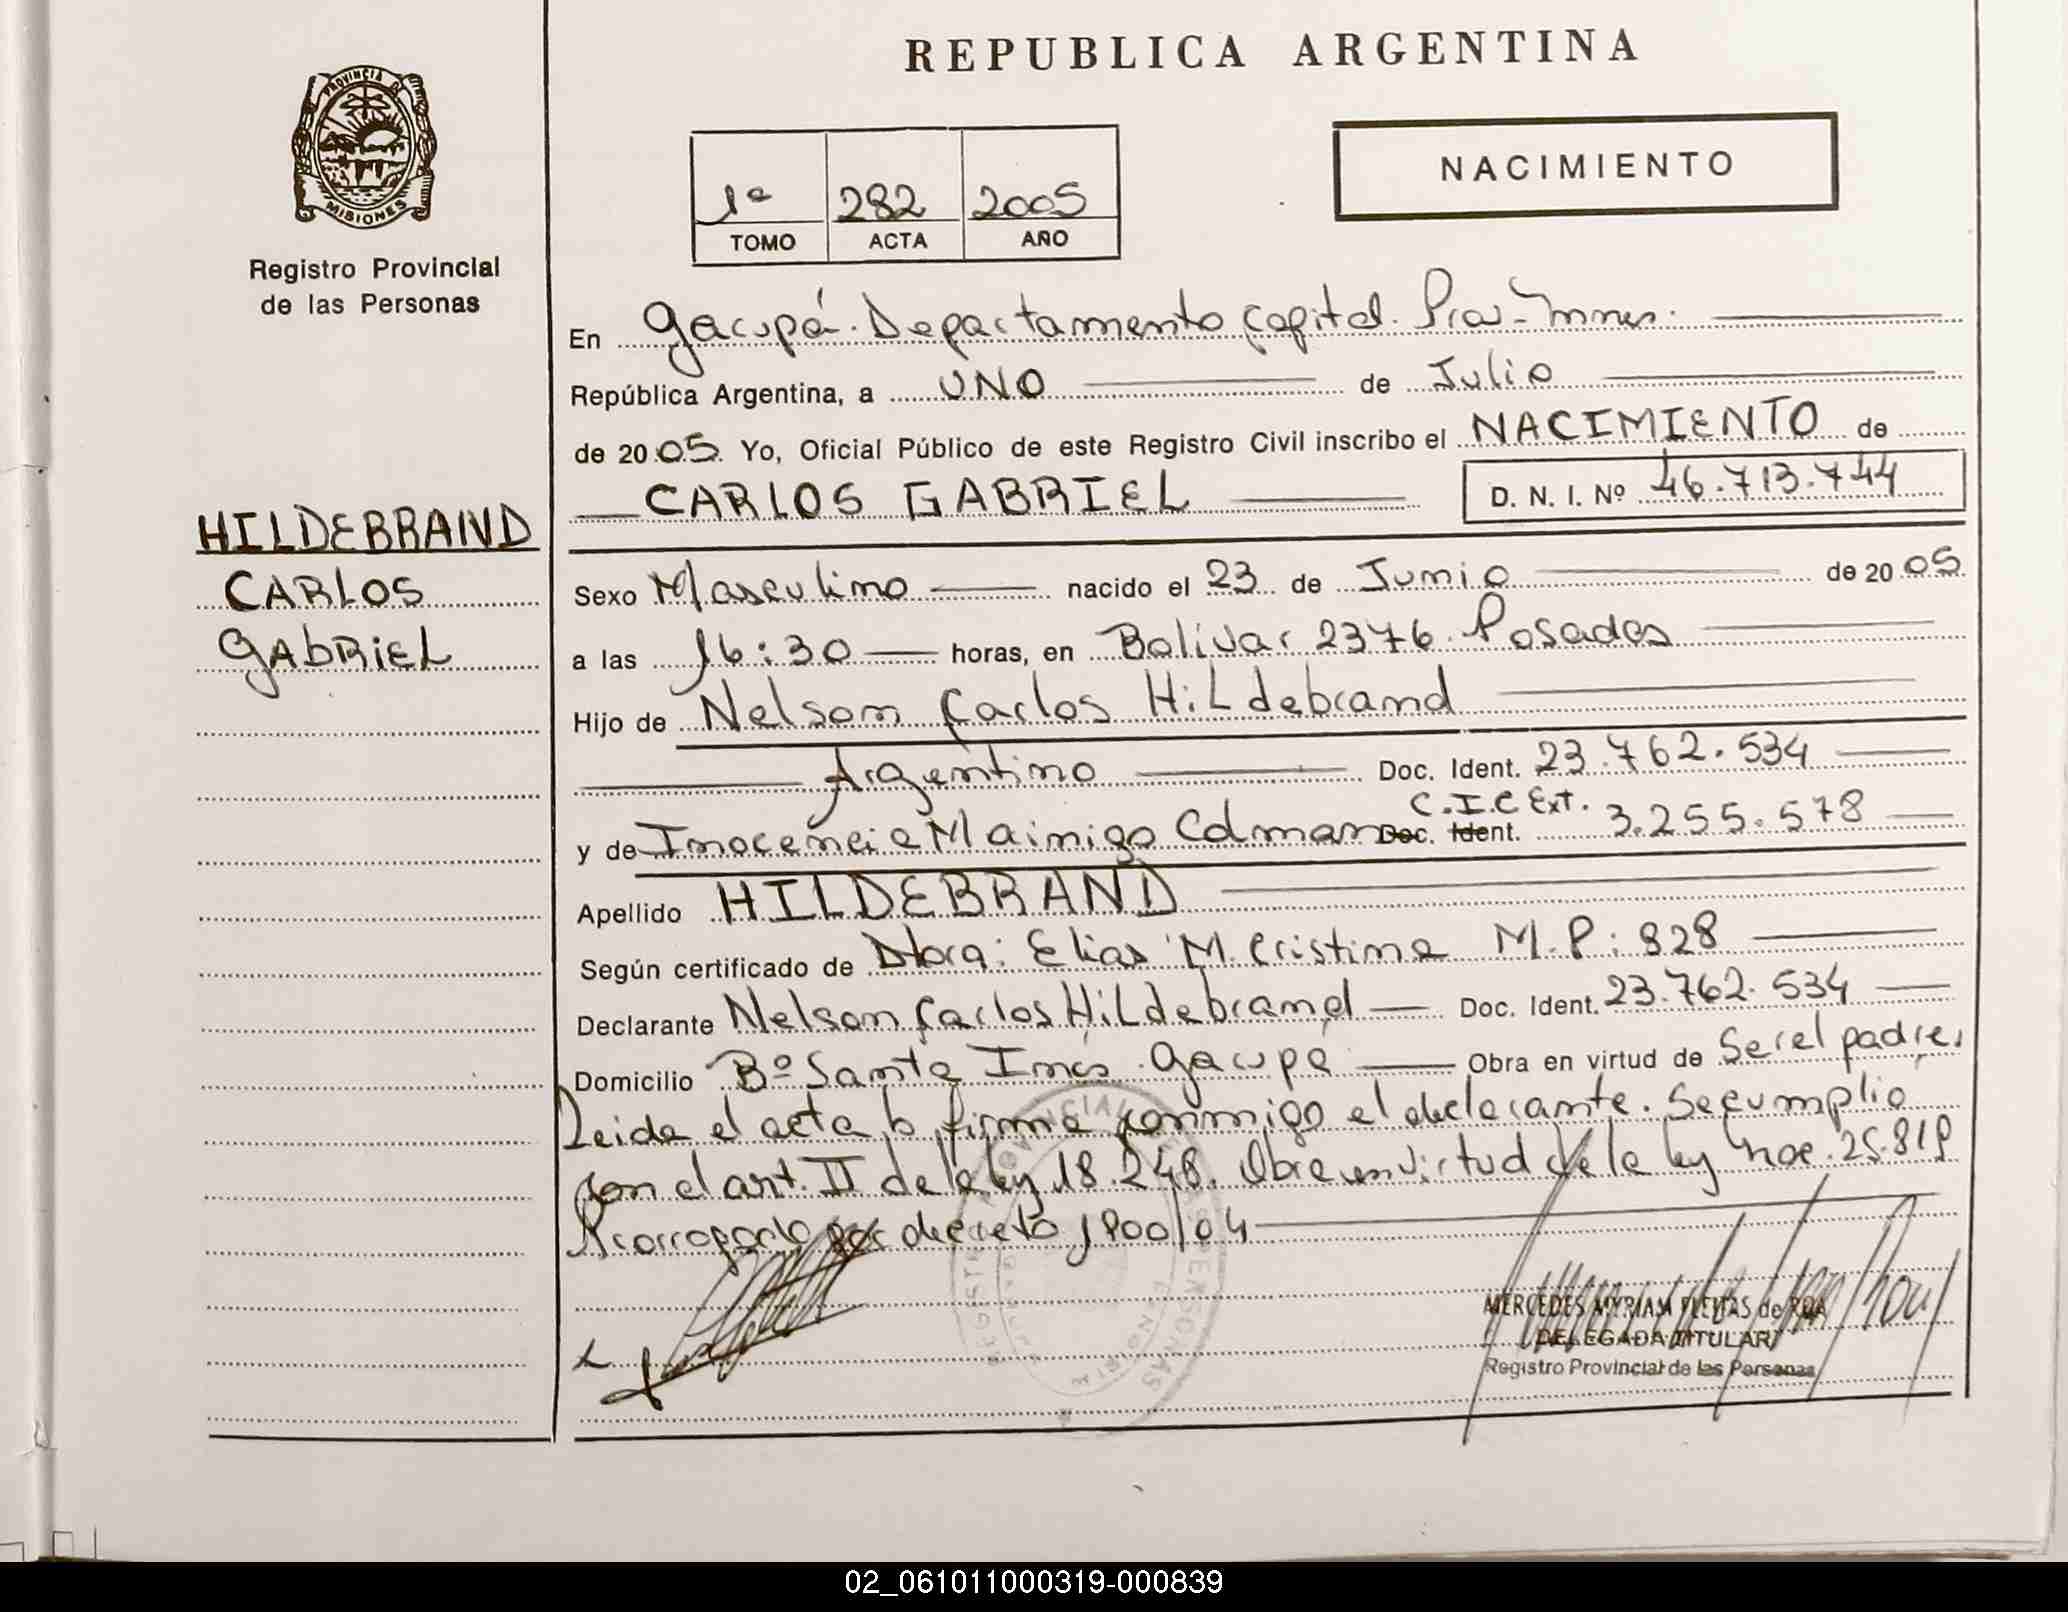 REPUBLICA ARGENTINA
PROVINCIA DE MISIONES
Registro Provincial
de las Personas
NACIMIENTO
1º 282 2005
TOMO ACTA AÑO
En Garupá. Departamento Capital. Prov. Mnes.
República Argentina, a UNO de Julio
de 2005 Yo, Oficial Público de este Registro Civil inscribo el NACIMIENTO de
CARLOS GABRIEL D. N. I. Nº 46.713.744
HILDEBRAND
CARLOS
GABRIEL
Sexo Masculino nacido el 23 de Junio de 2005
a las 16:30 horas, en Bolívar 2376. Posadas
Hijo de Nelson Carlos Hildebrand
Argentino Doc. Ident. 23.762.534
C.I.C Ext.
y de Inocencia Mainigo Colman Doc. Ident. 3.255.578
Apellido HILDEBRAND
Según certificado de Dtora: Elias M. Cristina M.P.: 828
Declarante Nelson Carlos Hildebrand Doc. Ident. 23.762.534
Domicilio Bº Santa Inés. Garupá Obra en virtud de Ser el padre.
Leida el acta la firma conmigo el declarante. Se cumplio
con el art. II de la ley 18.248. Obra en virtud de la ley nac. 25.819
Prorrogado por decreto 1900/04
REGISTRO PROVINCIAL DE LAS PERSONAS
MERCEDES MYRIAM FLEITAS de ROA
DELEGADA TITULAR
Registro Provincial de las Personas
02_061011000319-000839